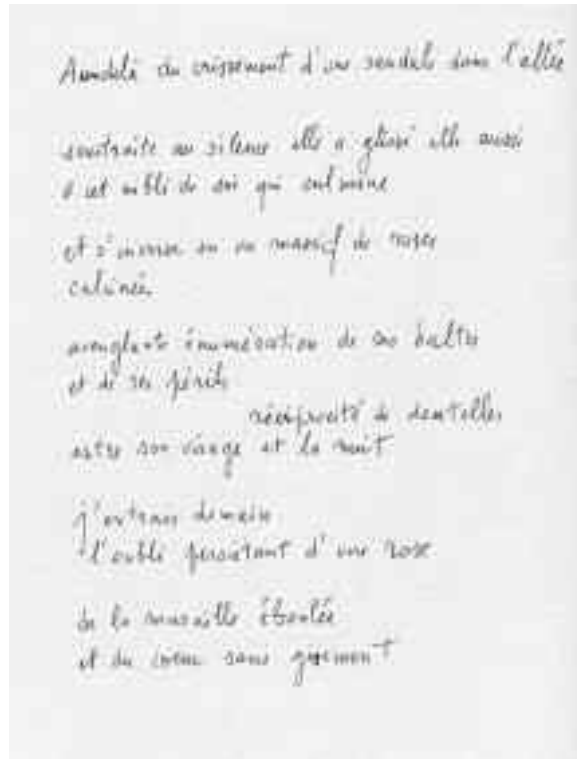 Au-delà du crissement d'une sandale dans l'allée
soustraite au silence elle a glissé elle aussi
à cet oubli de soi qui culmine
et s'inverse en un massif de roses
calcinées
aveuglante énumération de ses haltes
et de ses périls
réciprocité de dentelles
entre son visage et la nuit
j'extrais demain
l'oubli persistant d'une rose
de la muraille éboulée
et du coeur sans gisement